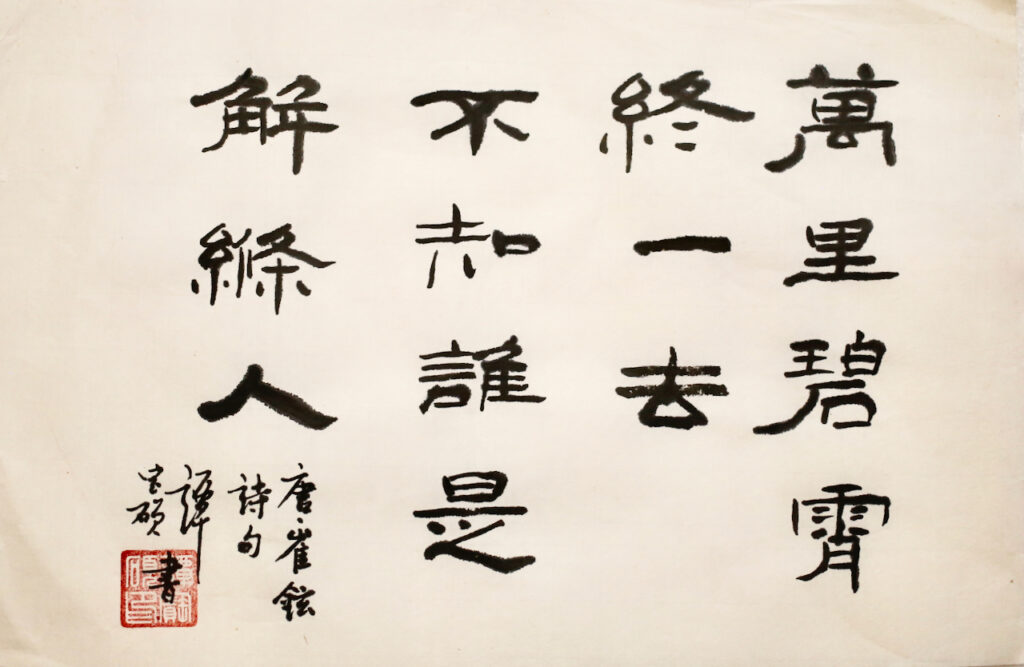 萬里碧霄
終一去
不知誰是
解縧人
唐·崔鉉
詩句
譚
寶碩
書